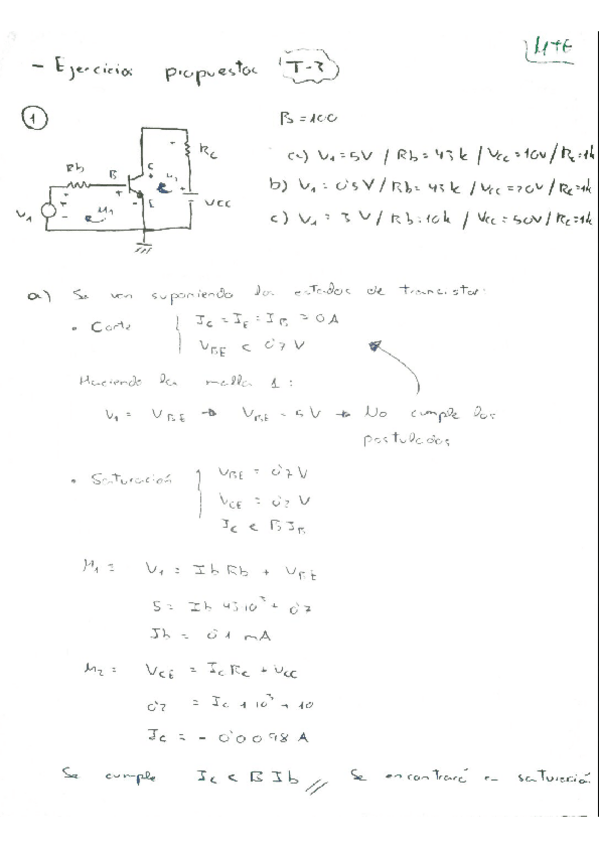 MTE
- Ejercicios propuestos T-3
1
B = 100
a) V1 = 5V / Rb = 43k / Vcc = 10V / Rc = 1k
b) V1 = 0'5V / Rb = 43k / Vcc = 20V / Rc = 1k
c) V1 = 3V / Rb = 10k / Vcc = 50V / Rc = 1k
Rc
Rb B C E
V1 M1 VCC
a) Se van suponiendo los estados de transistor:
• Corte Ic = IE = IB = 0 A
VBE < 0'7 V
Haciendo la malla 1:
V1 = VBE → VBE = 5V → No cumple los
postulados
• Saturación VBE = 0'7 V
VCE = 0'2 V
Ic < B IB
M1 = V1 = Ib Rb + VBE
5 = Ib 43 10³ + 0'7
Ib = 0'1 mA
M2 = VCE = Ic Rc + Vcc
0'2 = Ic 1 10³ + 10
Ic = - 0'0098 A
Se cumple Ic < B Ib // Se encontrará en saturación